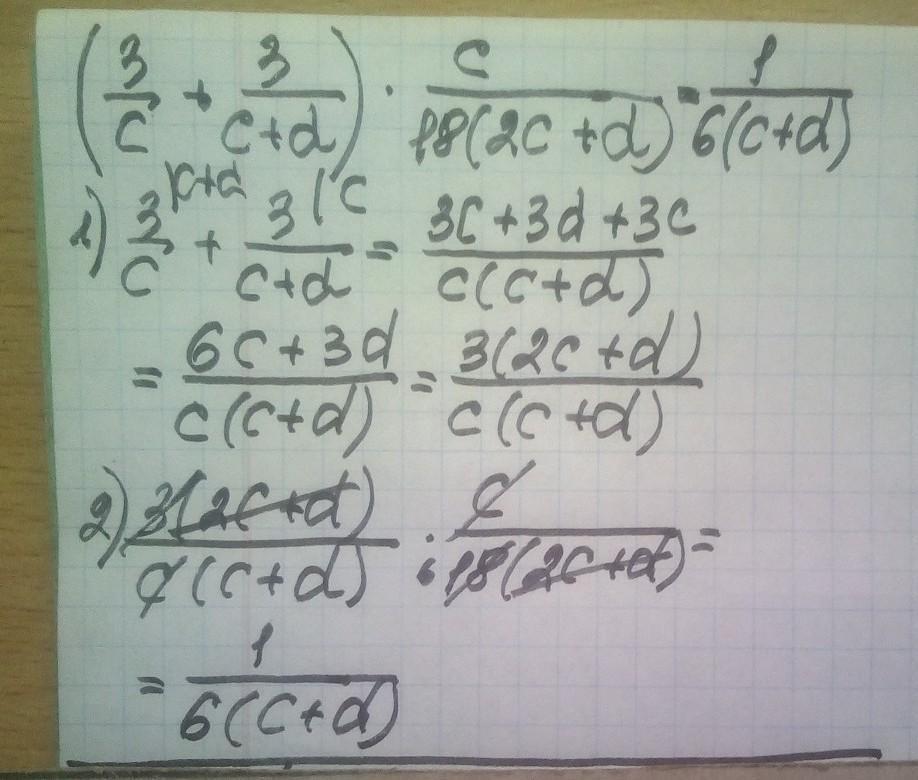 (3/c + 3/(c+d)) · c/(18(2c+d)) = 1/(6(c+d))
1) 3/c |c+d + 3/(c+d) |c = (3c+3d+3c)/(c(c+d))
= (6c+3d)/(c(c+d)) = (3(2c+d))/(c(c+d))
2) (3(2c+d))/(c(c+d)) · c/(6 18(2c+d)) =
= 1/(6(c+d))